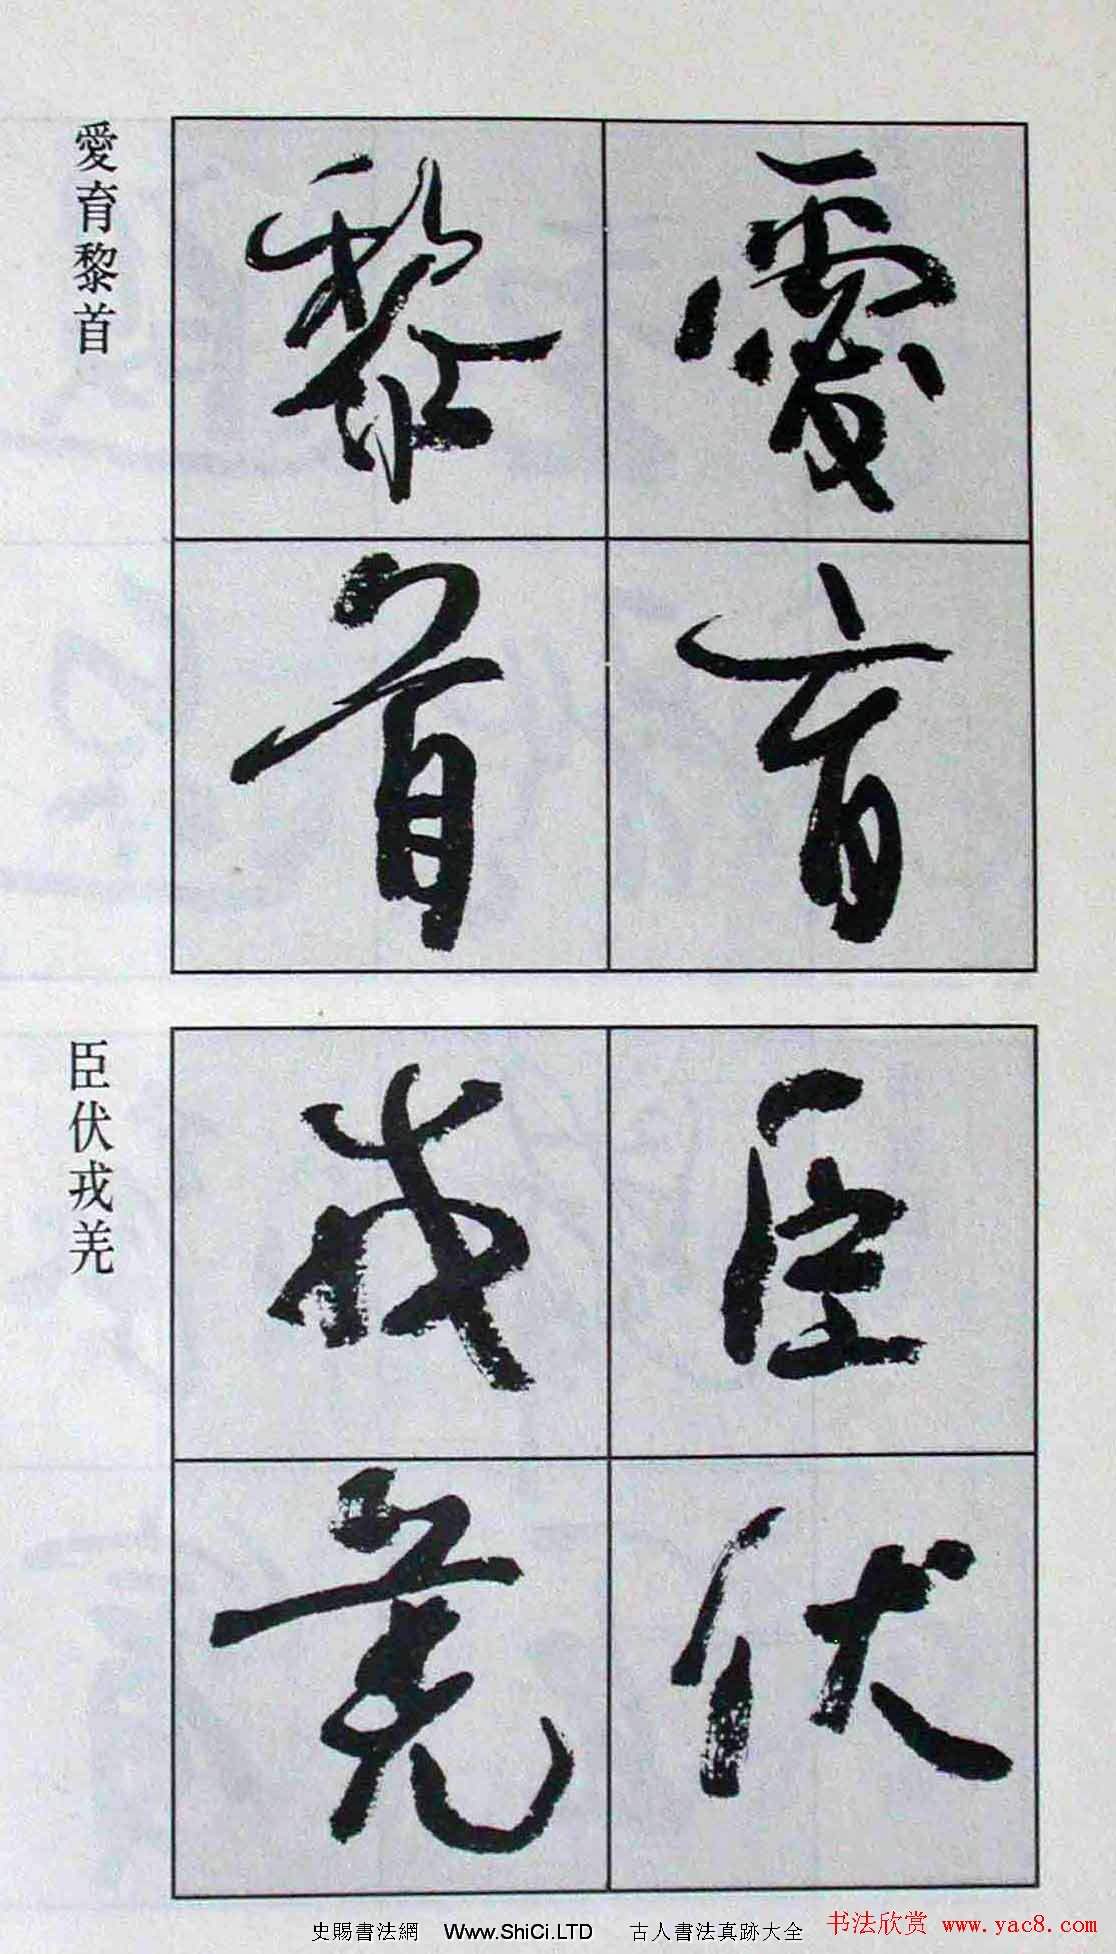 愛育
黎首
愛育黎首
臣伏
戎羌
臣伏戎羌
史賜書法網 Www.ShiCi.LTD 古人書法真跡大全
书法欣赏 www.yac8.com